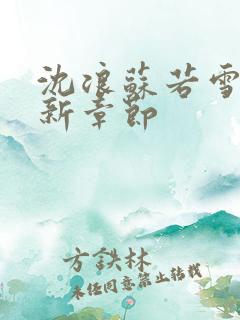 沈浪蘇若雪
新章節
方鉄林
未经同意禁止转载